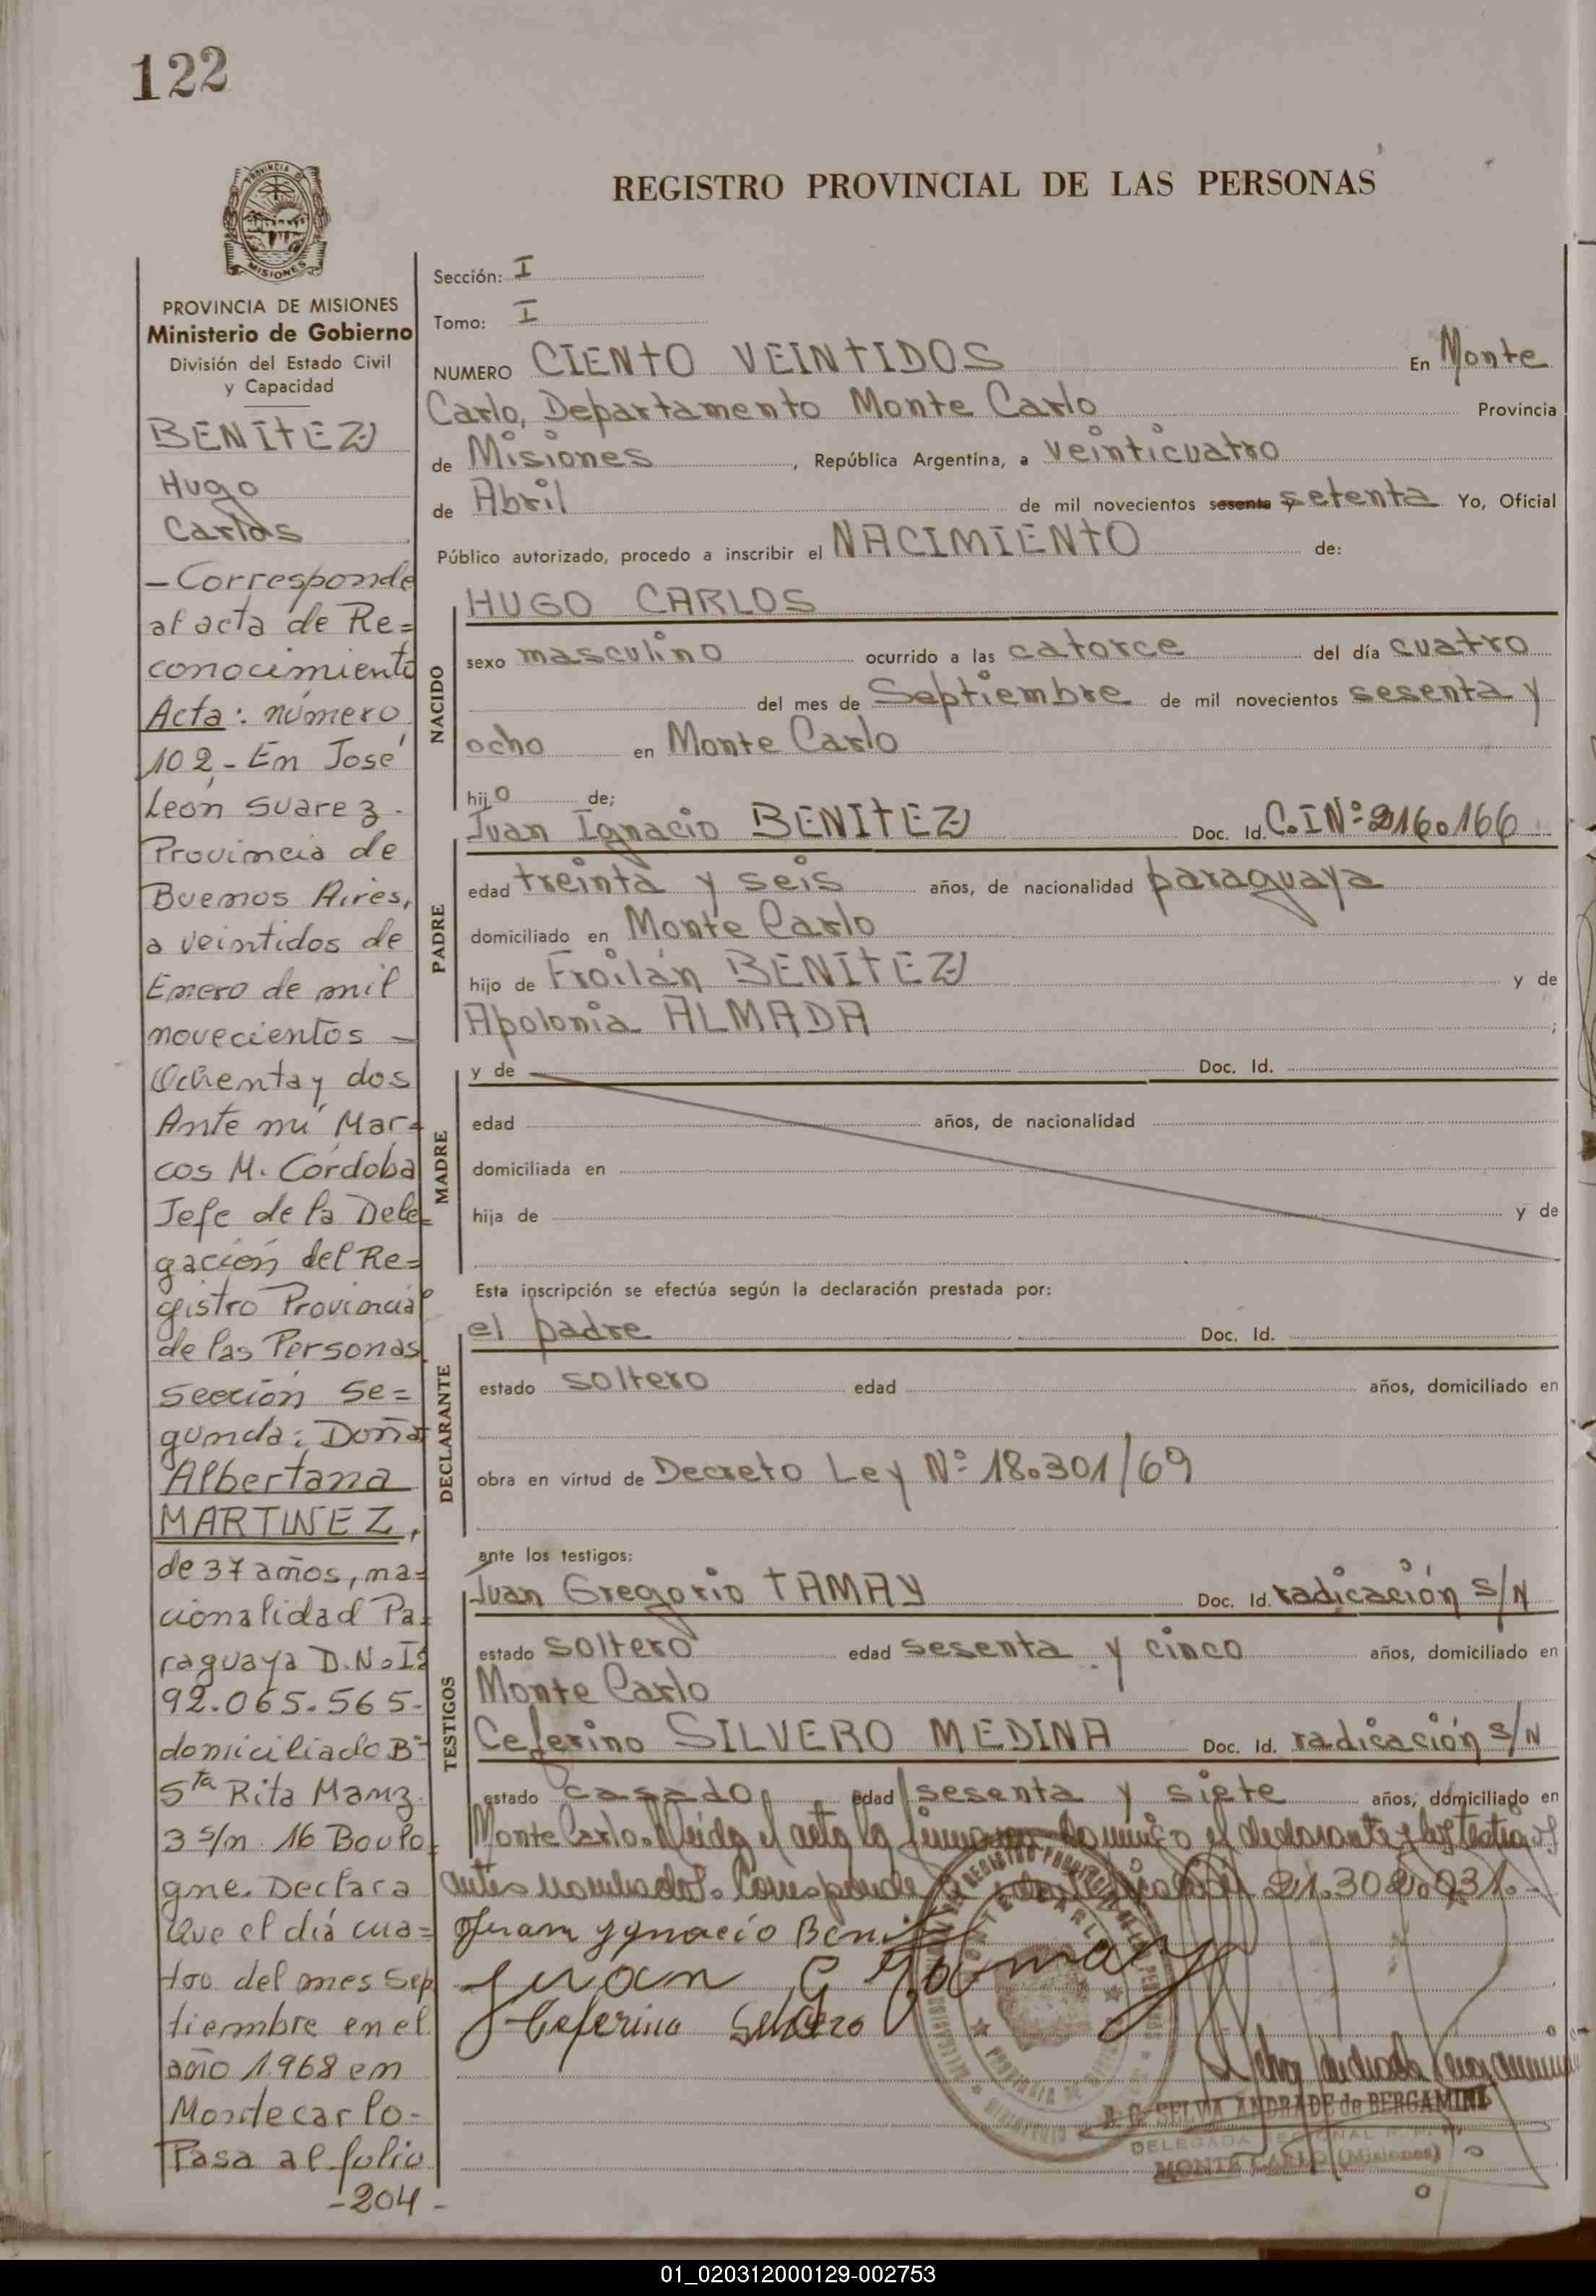 122
REGISTRO PROVINCIAL DE LAS PERSONAS
PROVINCIA DE MISIONES
Ministerio de Gobierno
División del Estado Civil
y Capacidad
BENITEZ
Hugo
Carlos
- Corresponde
al acta de Re=
conocimiento
Acta: número
102 - En José
León Suarez -
Provincia de
Buenos Aires,
a veintidos de
Enero de mil
novecientos -
Ochenta y dos
Ante mí Mar-
cos M. Córdoba
Jefe de la Dele-
gación del Re=
gistro Provincial
de las Personas
Sección Se=
gunda: Doña
Albertana
MARTINEZ,
de 37 años, na=
cionalidad Pa-
raguaya D.N.I:
92.065.565-
domiciliado Bº
Sta Rita Manz.
3 s/n 16 Boulo-
gne. Declara
Que el día cua=
tro del mes Sep
tiembre en el
año 1.968 en
Montecarlo-
Pasa al folio
-204-
Sección: I
Tomo: I
NUMERO CIENTO VEINTIDOS En Monte
Carlo, Departamento Monte Carlo Provincia
de Misiones, República Argentina, a veinticuatro
de Abril de mil novecientos sesenta y setenta Yo, Oficial
Público autorizado, procedo a inscribir el NACIMIENTO de:
NACIDO
HUGO CARLOS
sexo masculino ocurrido a las catorce del día cuatro
del mes de Septiembre de mil novecientos sesenta y
ocho en Monte Carlo
hijo de;
PADRE
Juan Ignacio BENITEZ Doc. Id. C.I Nº 216.166
edad treinta y seis años, de nacionalidad paraguaya
domiciliado en Monte Carlo
hijo de Froilán BENITEZ y de
Apolonia ALMADA ;
MADRE
y de Doc. Id.
edad años, de nacionalidad
domiciliada en
hija de y de
Esta inscripción se efectúa según la declaración prestada por:
DECLARANTE
el padre Doc. Id.
estado soltero edad años, domiciliado en
obra en virtud de Decreto Ley Nº 18.301/69
ante los testigos:
TESTIGOS
Juan Gregorio TAMAY Doc. Id. radicación s/N
estado soltero edad sesenta y cinco años, domiciliado en
Monte Carlo
Ceferino SILVERO MEDINA Doc. Id. radicación s/N
estado casado edad sesenta y siete años, domiciliado en
Monte Carlo. Leída el acta la firma conmigo el declarante y los testigos
antes nombrados. Corresponde 21.302.031.-
Juan Ygnacio Benitez
Juan G Tamay
Ceferino Silvero
D. G. SELVA ANDRADE de BERGAMINI
DELEGADA REGIONAL R. P. P.
MONTE CARLO (Misiones)
01_020312000129-002753